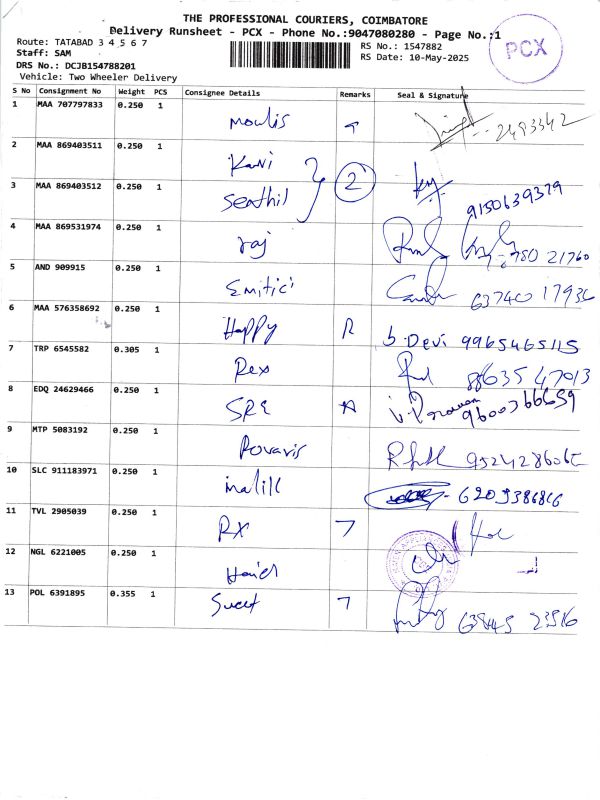 THE PROFESSIONAL COURIERS, COIMBATORE
Delivery Runsheet - PCX - Phone No.:9047080280 - Page No.:1
Route: TATABAD 3 4 5 6 7
RS No.: 1547882
PCX
Staff: SAM
RS Date: 10-May-2025
DRS No.: DCJB154788201
Vehicle: Two Wheeler Delivery
S No Consignment No Weight PCS Consignee Details Remarks Seal & Signature
1 MAA 707797833 0.250 1 Moulis 2493342
2 MAA 869403511 0.250 1 Kavi 2
3 MAA 869403512 0.250 1 Senthil 9150639379
4 MAA 869531974 0.250 1 raj 780 21760
5 AND 909915 0.250 1 Emitici 63740 17936
6 MAA 576358692 0.250 1 Happy R b. Devi 9965465115
7 TRP 6545582 0.305 1 Rex 88635 47013
8 EDQ 24629466 0.250 1 SRE 9600366659
9 MTP 5083192 0.250 1
10 SLC 911183971 0.250 1 - 6209386816
11 TVL 2905039 0.250 1 RX 7
12 NGL 6221005 0.250 1
13 POL 6391895 0.355 1 Sweet 7 63845 23516